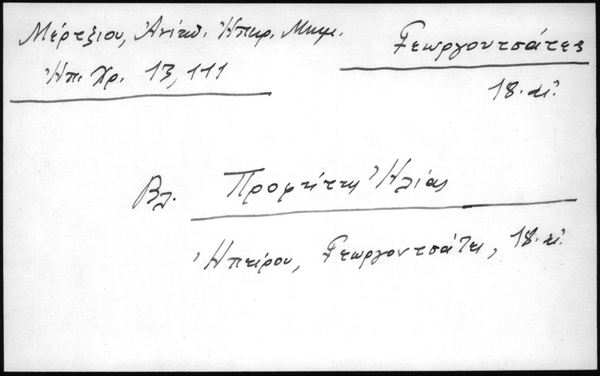 Μέρτζιου, Ἀνέκδ. Ἠπειρ. Μνημ.
Ἠπ. Χρ. 13, 111
Γεωργουτσάτες
18. αἰ.
Βλ. Προφήτης Ἠλίας
Ἠπείρου, Γεωργουτσάτες, 18. αἰ.